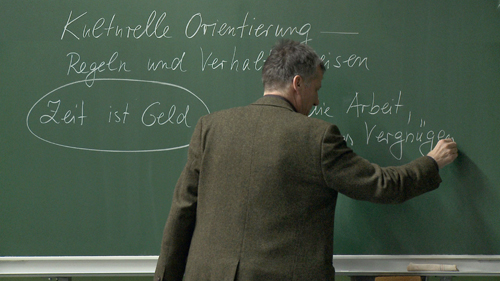 Kulturelle Orientierung —
Regeln und Verhal
Zeit ist Geld
die Arbeit,
Vergnügen